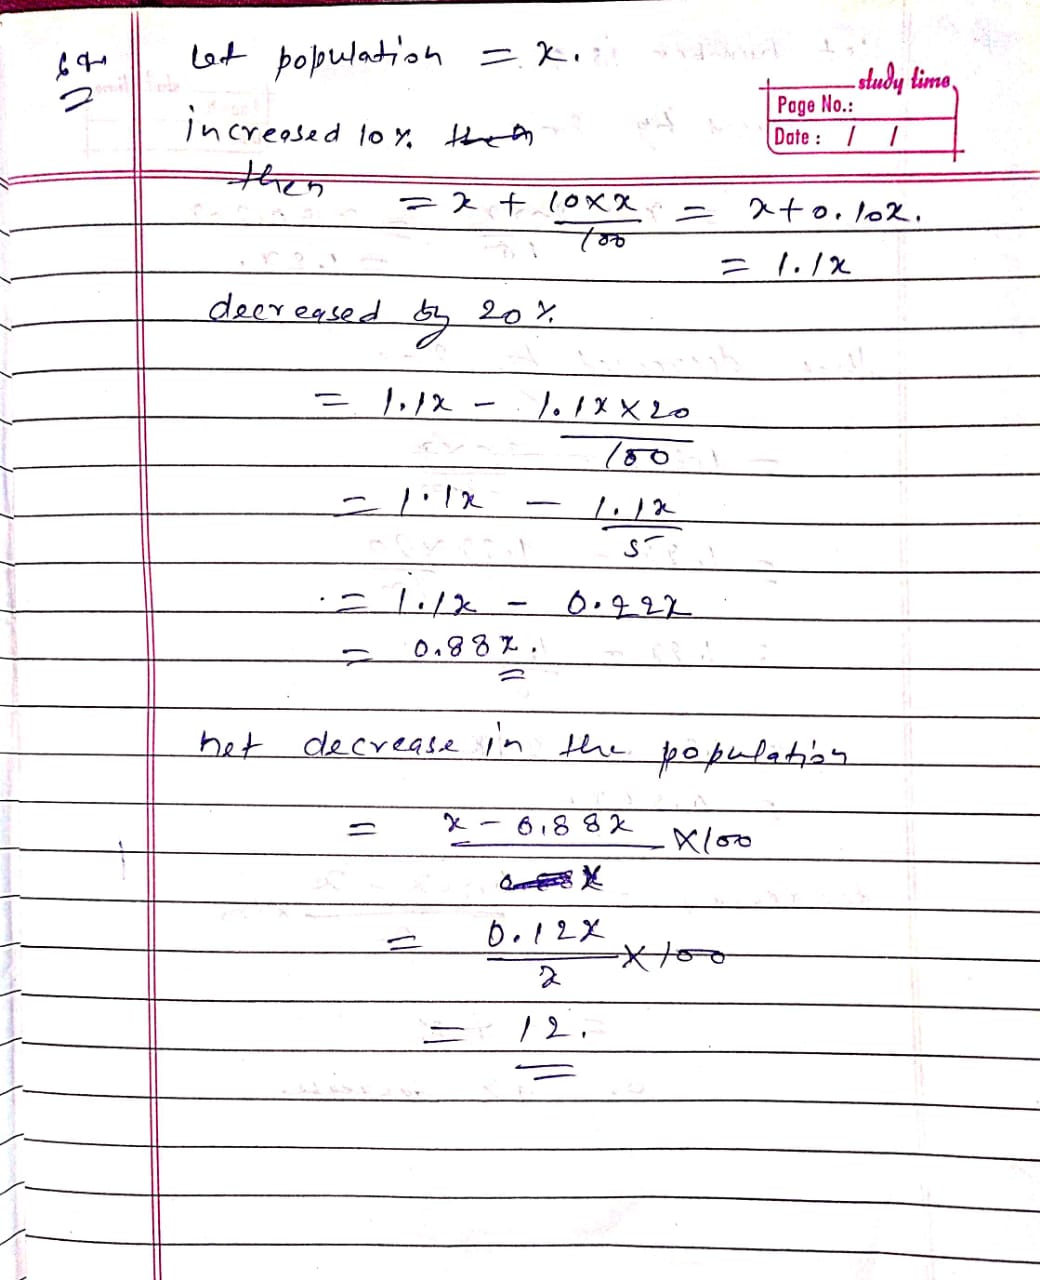 Let population = x.
study time
Page No.:
Date : / /
increased 10%
then
= x + 10×x/100 = x+0.10x.
= 1.1x
decreased by 20%
= 1.1x - 1.1x×20/100
= 1.1x - 1.1x/5
= 1.1x - 0.22x
= 0.88x.
net decrease in the population
= x-0.88x/x ×100
= 0.12x/x ×100
= 12.